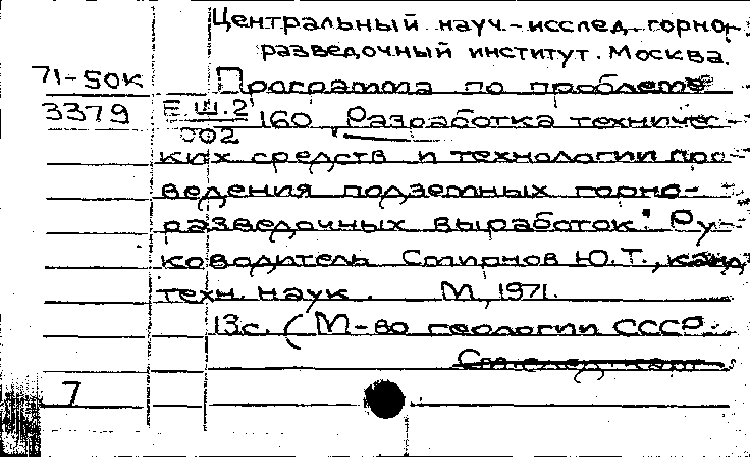 Центральный науч.-исслед. горно-
разведочный институт. Москва.
71-50К Программа по проблеме
3379 Ш.2 160 "Разработка техничес-
002
ких средств и технологии про-
ведения подземных горно-
разведочных выработок". Ру-
ководитель Смирнов Ю.Т., канд.
техн. наук. М., 1971.
13с. (М-во геологии СССР.
См. след. карт.
7